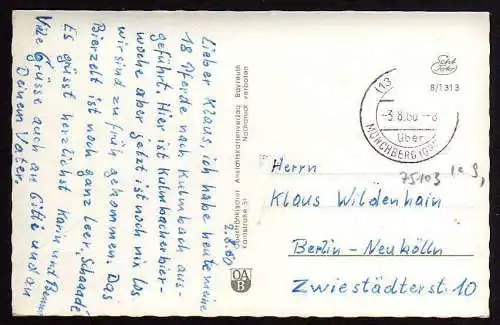 2.8.60
Lieber Klaus, ich habe heute meine
18 Pferde nach Kulmbach aus-
geführt. Hier ist Kulmbacher Bier-
woche aber jetzt ist noch nix los
wir sind zu früh gekommen. Das
Bierzelt ist noch ganz leer. Schaaade
Es grüsst herzlichst Karin und
Viele Grüsse auch an Gitti und an
Deinen Vater.
Oberfränkischer Ansichtskartenverlag Bayreuth
Kantstraße 31 Nachdruck verboten
OA
B
Echt
Foto
8/1313
(13
-3.8.60.-8
über
MÜNCHBERG
75103
Herrn
Klaus Wildenhain
Berlin-Neukölln
Zwiestädterstr. 10